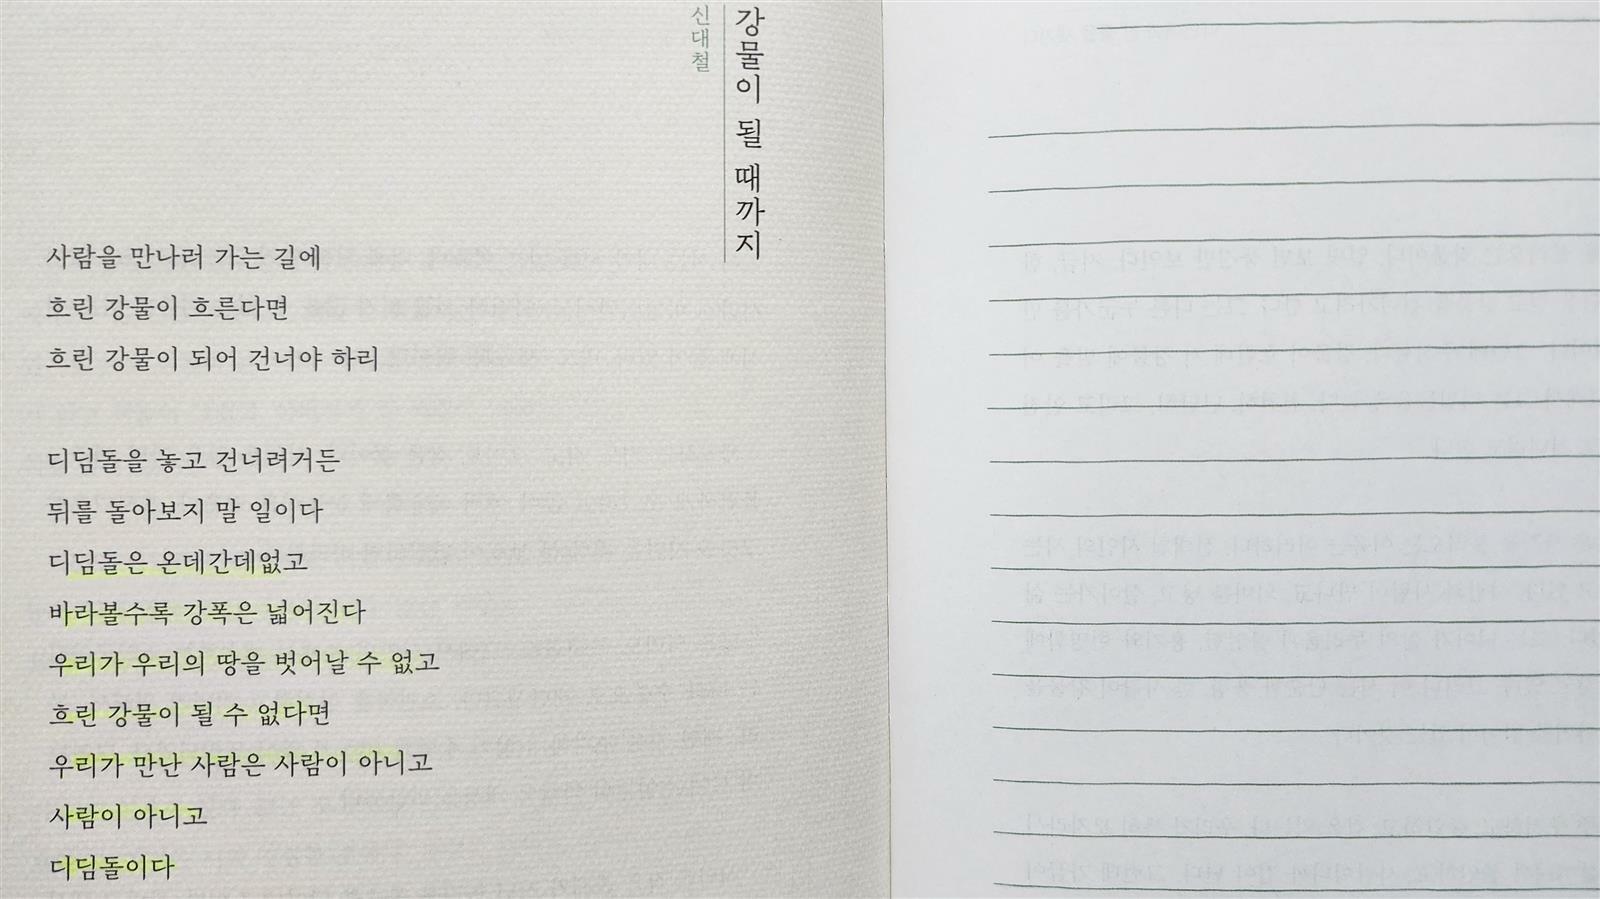 강물이 될 때까지
신대철
사람을 만나러 가는 길에
흐린 강물이 흐른다면
흐린 강물이 되어 건너야 하리
디딤돌을 놓고 건너려거든
뒤를 돌아보지 말 일이다
디딤돌은 온데간데없고
바라볼수록 강폭은 넓어진다
우리가 우리의 땅을 벗어날 수 없고
흐린 강물이 될 수 없다면
우리가 만난 사람은 사람이 아니고
사람이 아니고
디딤돌이다